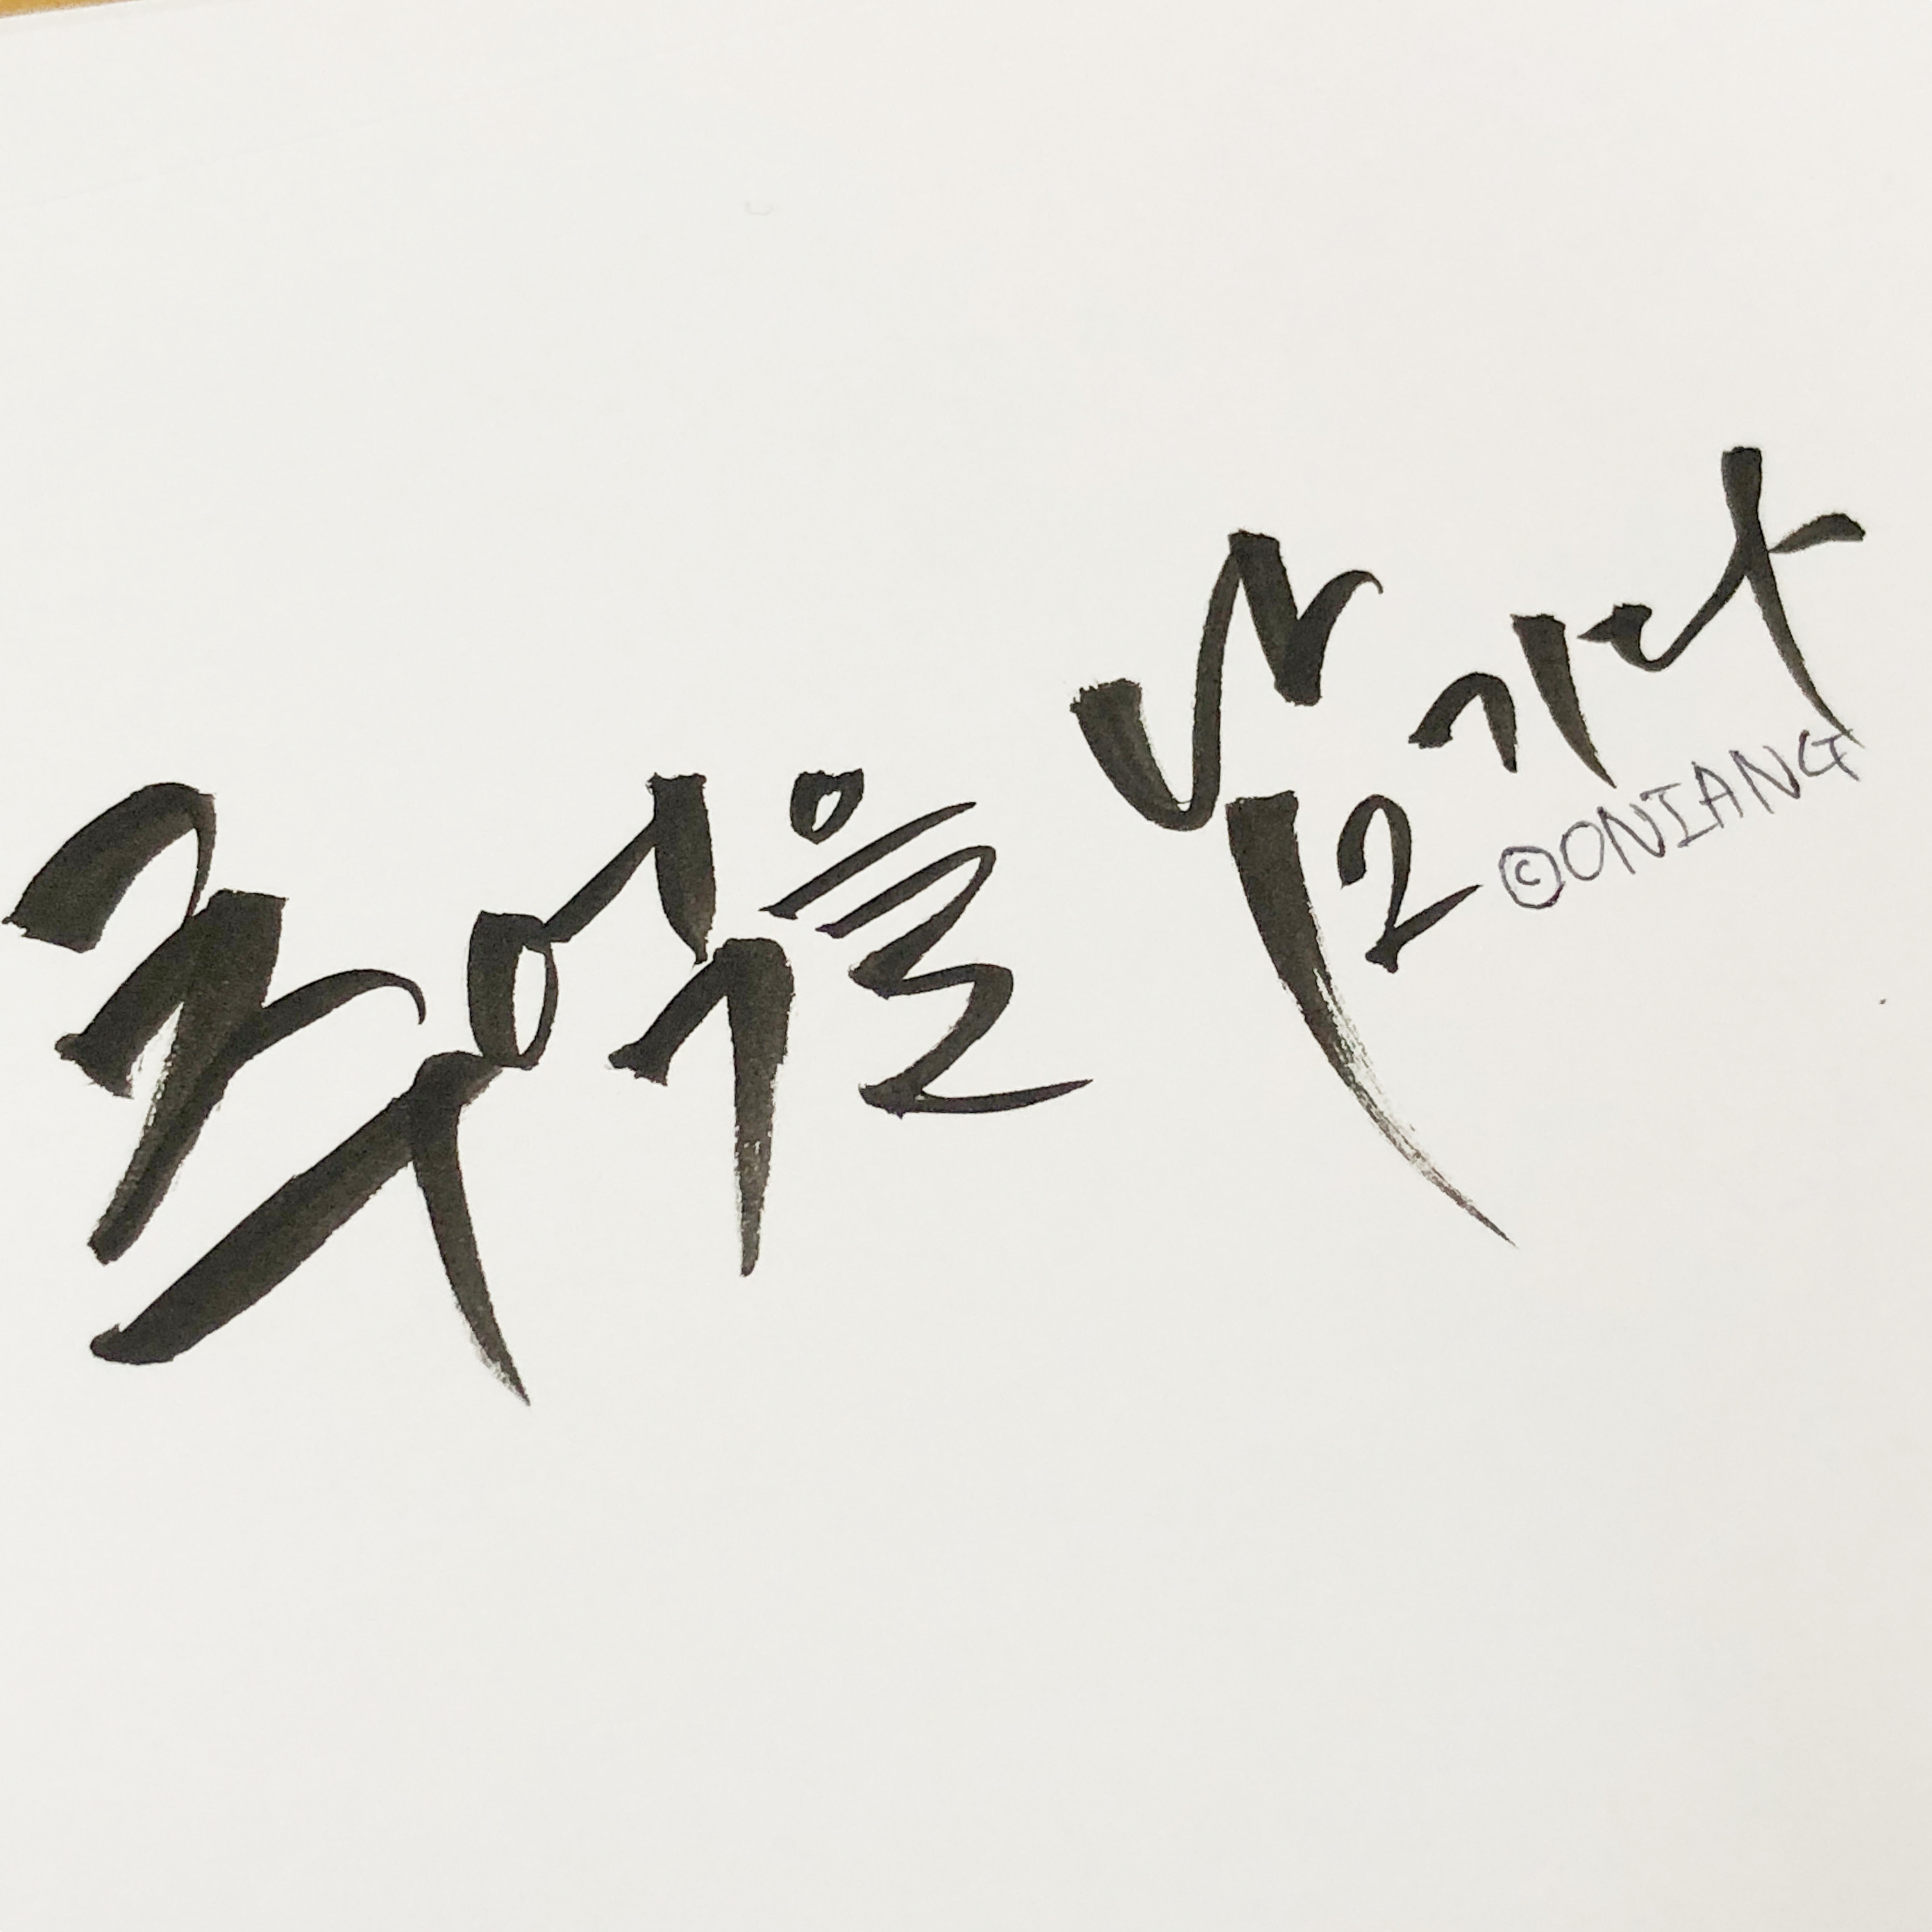 추억을 남기다
©ONIANG